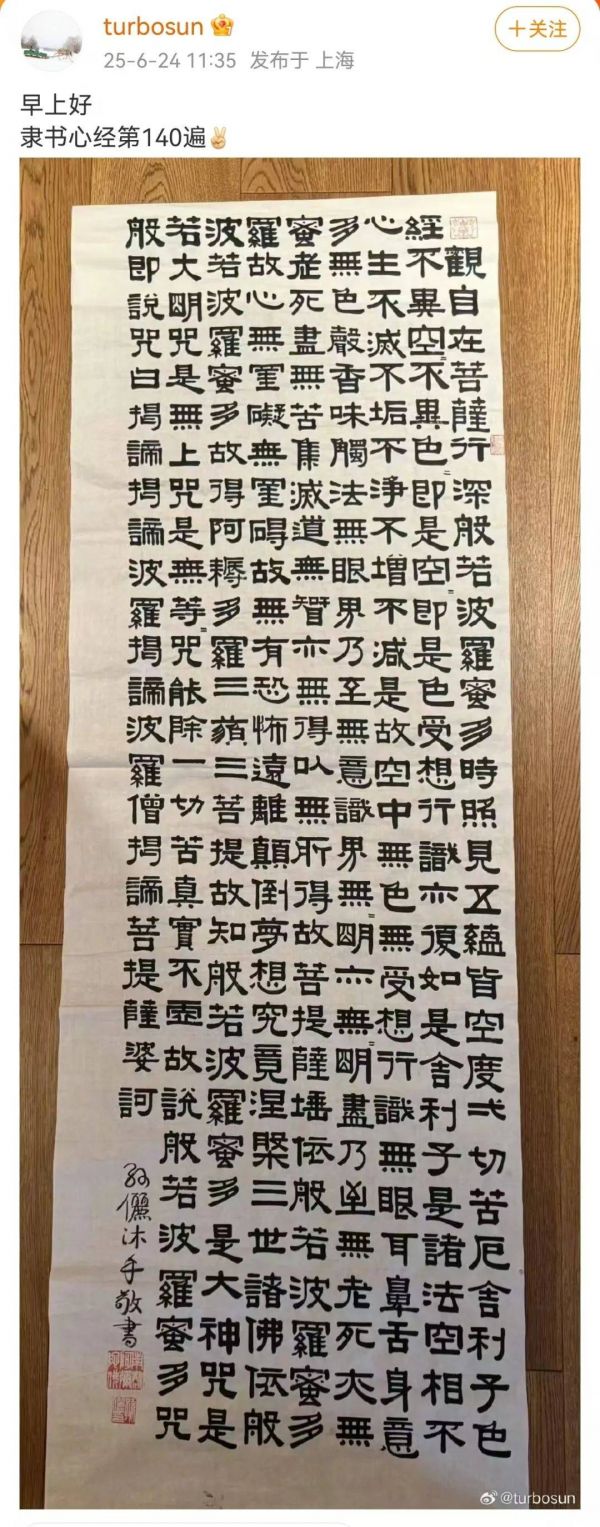 turbosun
+关注
25-6-24 11:35 发布于 上海
早上好
隶书心经第140遍✌🏻
般若波羅蜜多心經
觀自在菩薩行深般若波羅蜜多時照見五蘊皆空度一切苦厄舍利子色
不異空=不異色=即是空=即是色受想行識亦復如是舍利子是諸法空相不
生不滅不垢不淨不增不減是故空中無色無受想行識無眼耳鼻舌身意
無色聲香味觸法無眼界乃至無意識界無=明亦無明盡乃至無老死亦無
老死盡無苦集滅道無智亦無得以無所得故菩提薩埵依般若波羅蜜多
故心無罣礙無罣碍故無有恐怖遠離顛倒夢想究竟涅槃三世諸佛依般
若波羅蜜多故得阿耨多羅三藐三菩提故知般若波羅蜜多是大神咒是
大明咒是無上咒是無等=咒能除一切苦真實不虛故說般若波羅蜜多咒
即說咒曰揭諦揭諦波羅揭諦波羅僧揭諦菩提薩婆訶
孫儷沐手敬書
@turbosun